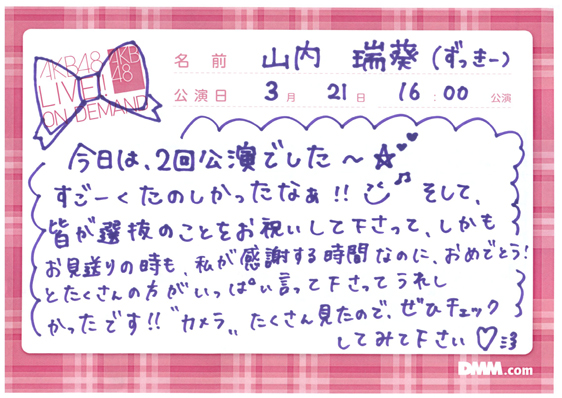 AKB48
LIVE!!
ON DEMAND
AKB
48
名前 山内 瑞葵(ずっきー)
公演日 3月 21日 16:00 公演
今日は、2回公演でした〜☆♥♥
すごーくたのしかったなぁ!!♪ そして、
皆が選抜のことをお祝いして下さって、しかも
お見送りの時も、私が感謝する時間なのに、おめでとう!
とたくさんの方がいっぱい言って下さってうれし
かったです!!"カメラ"たくさん見たので、ぜひチェック
してみて下さい♡
DMM.com